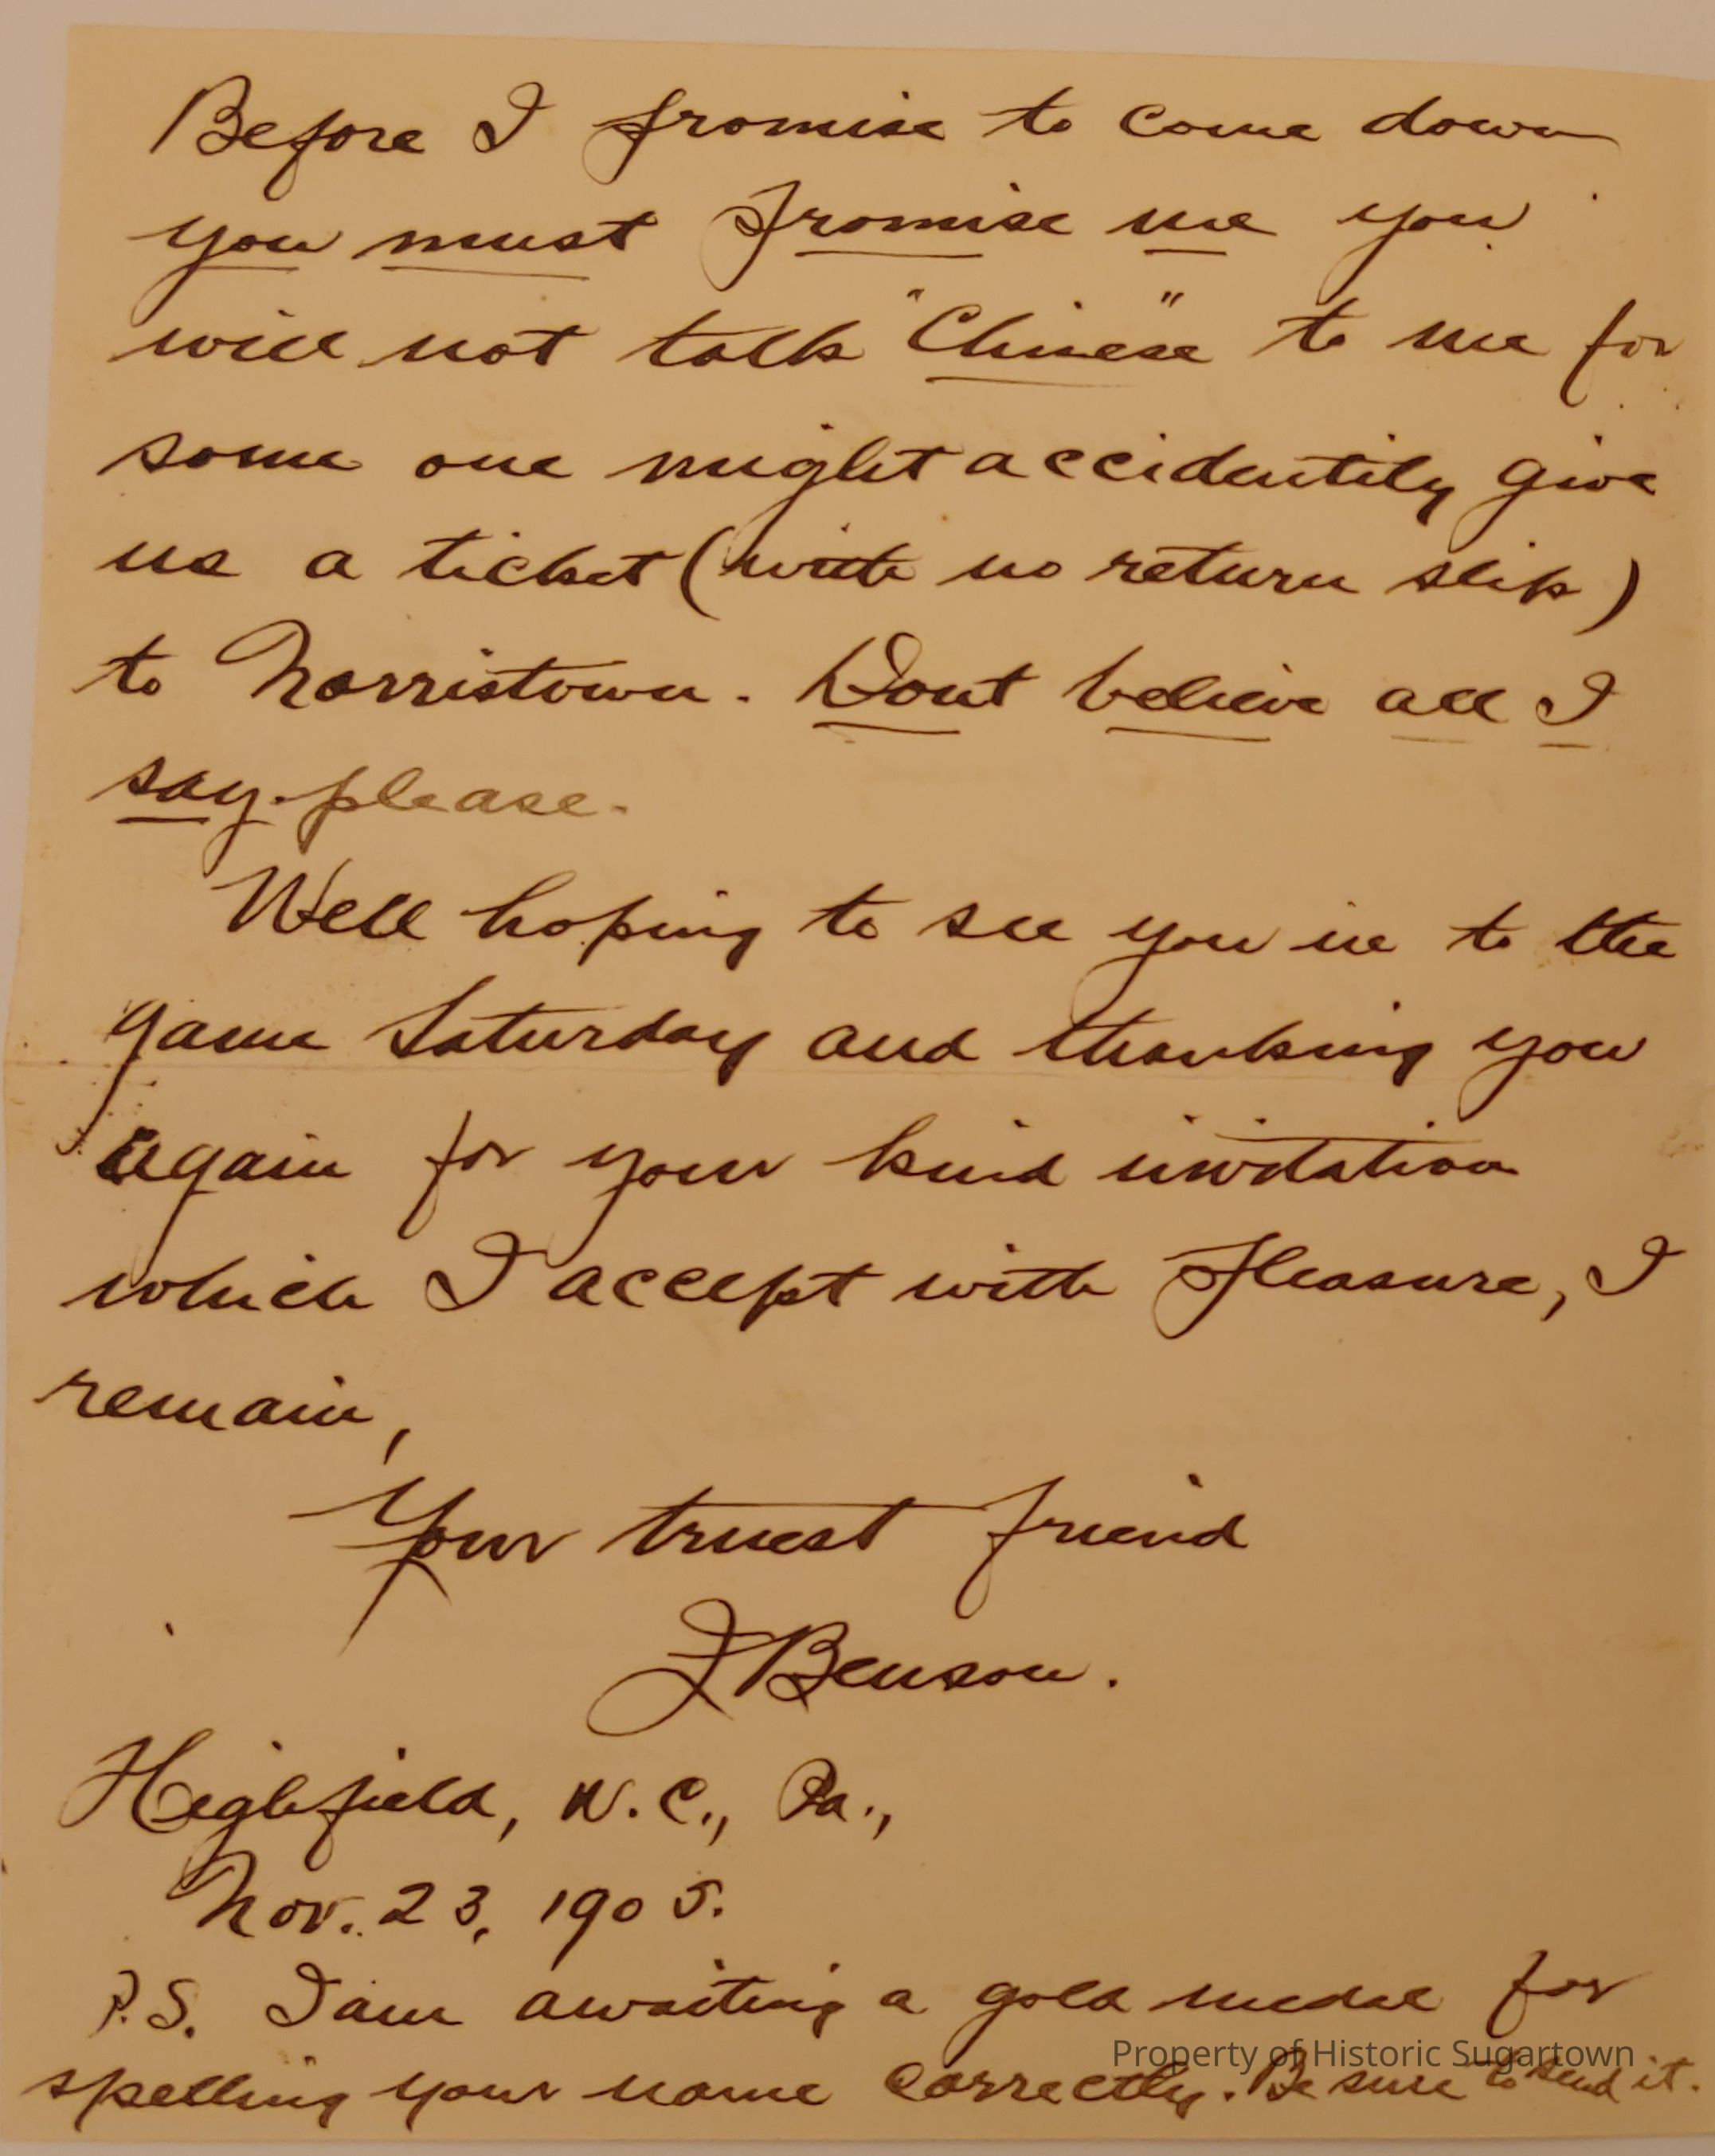 Before I promise to come down
you must promise me you
will not talk "Chinese" to me for
some one might accidentily give
us a ticket (with no return slip)
to Norristown. Dont believe all I
say please.
Well hoping to see you in to the
game Saturday and thanking you
again for your kind invitation
which I accept with pleasure, I
remain,
Your truest friend
J Benson.
Highfield, W.C., Pa.,
Nov. 23, 1905.
P.S. I am awaiting a gold medal for
spelling your name correctly. Be sure to send it.
Property of Historic Sugartown